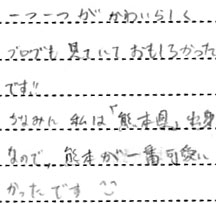 一つ一つが かわいらしく
プロでも 見ていて おもしろかった
です!!
ちなみに 私は「熊本県」出身
なので、熊本が 一番 可愛い
かったです